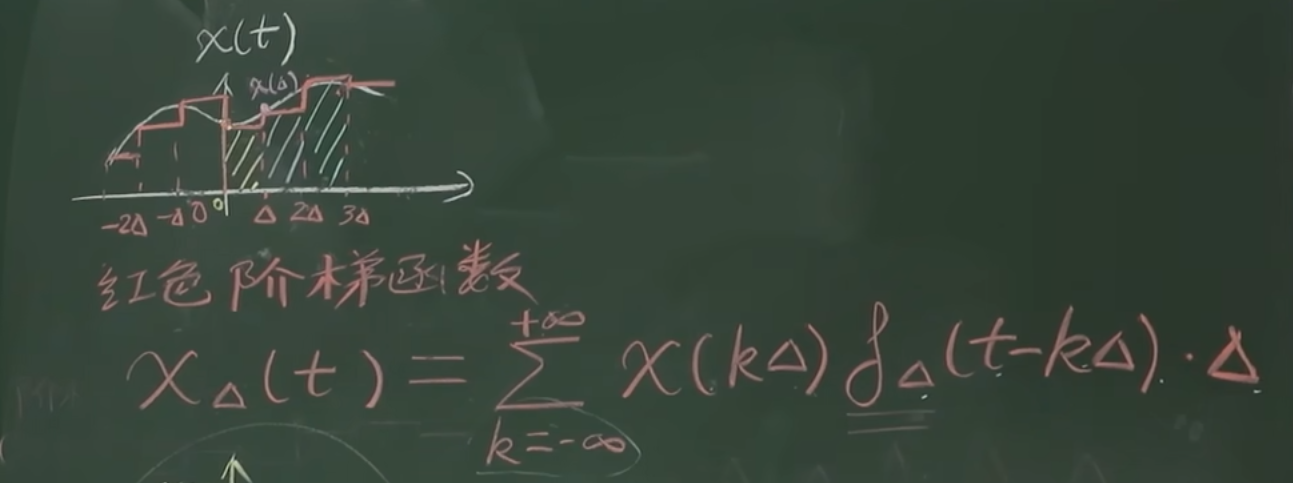 x(t)
x(Δ)
-2Δ -Δ 0 0 Δ 2Δ 3Δ
红色阶梯函数
+∞
x_Δ(t) = ∑ x(kΔ) δ_Δ(t-kΔ)·Δ
k=-∞